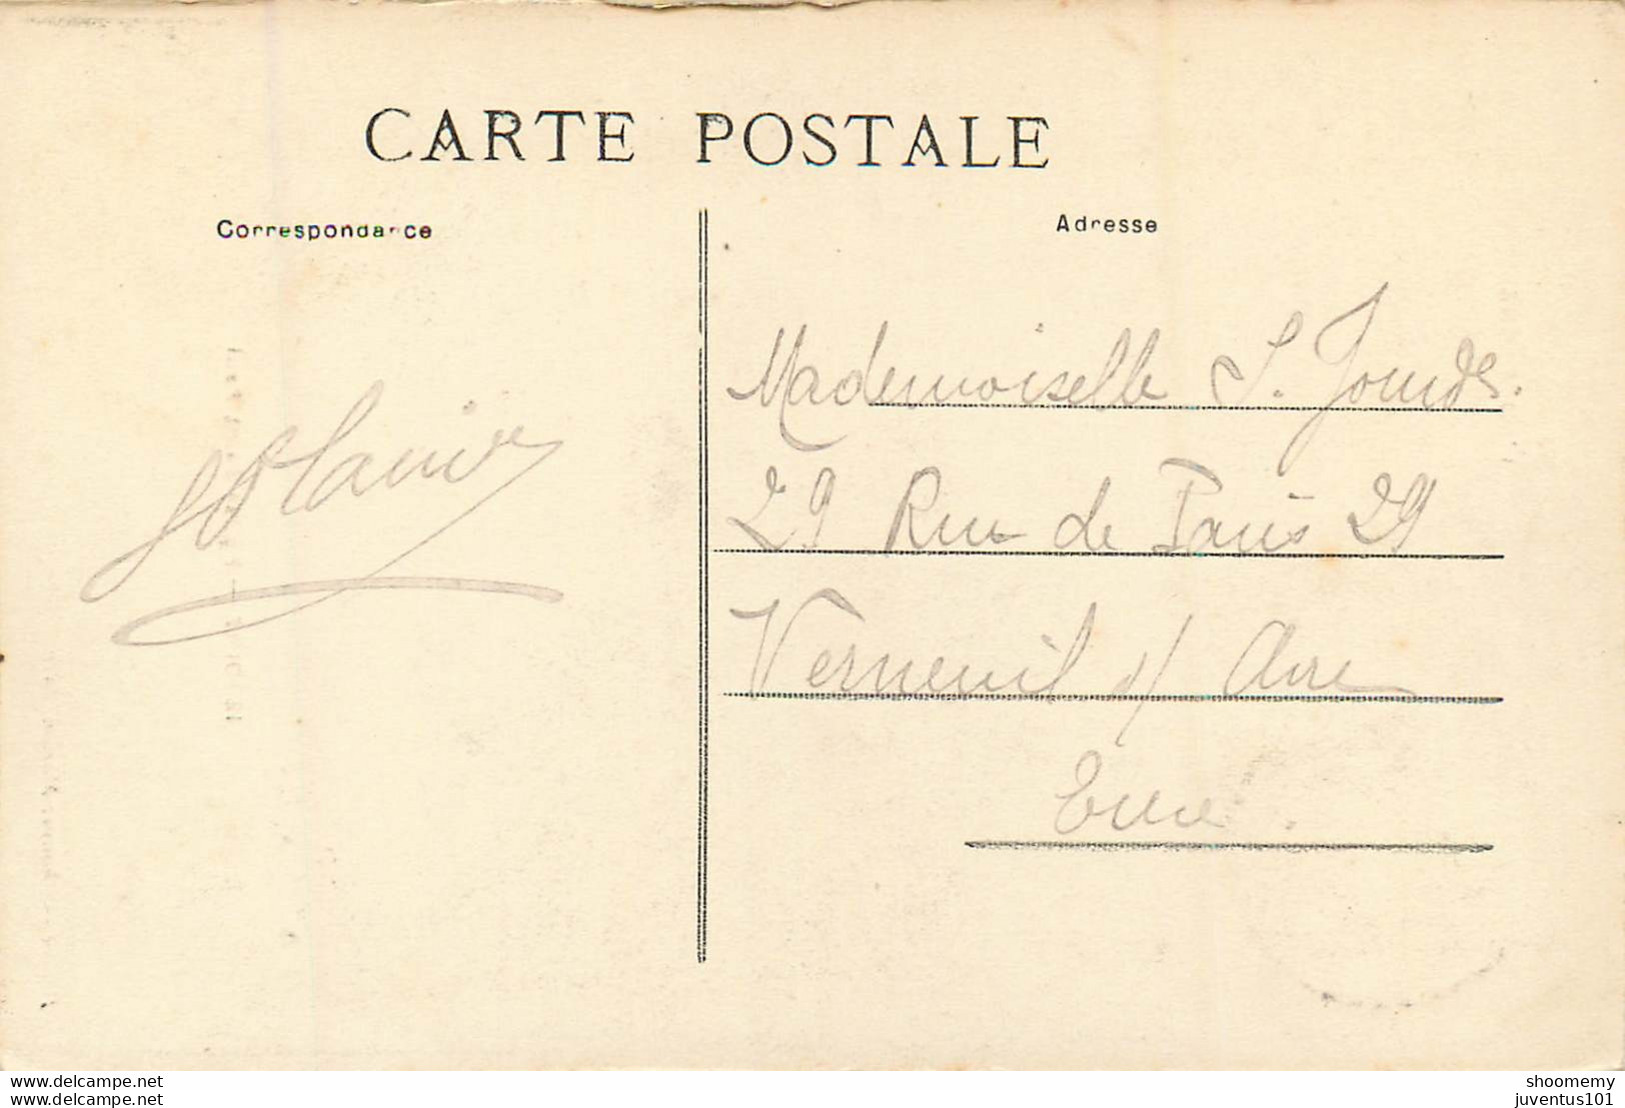 CARTE POSTALE
Correspondance
Adresse
Mademoiselle S. Jourde.
29 Rue de Paris 29
Verneuil s/ Avre
Eure.
www.delcampe.net
www.delcampe.net
shoomemy
juventus101